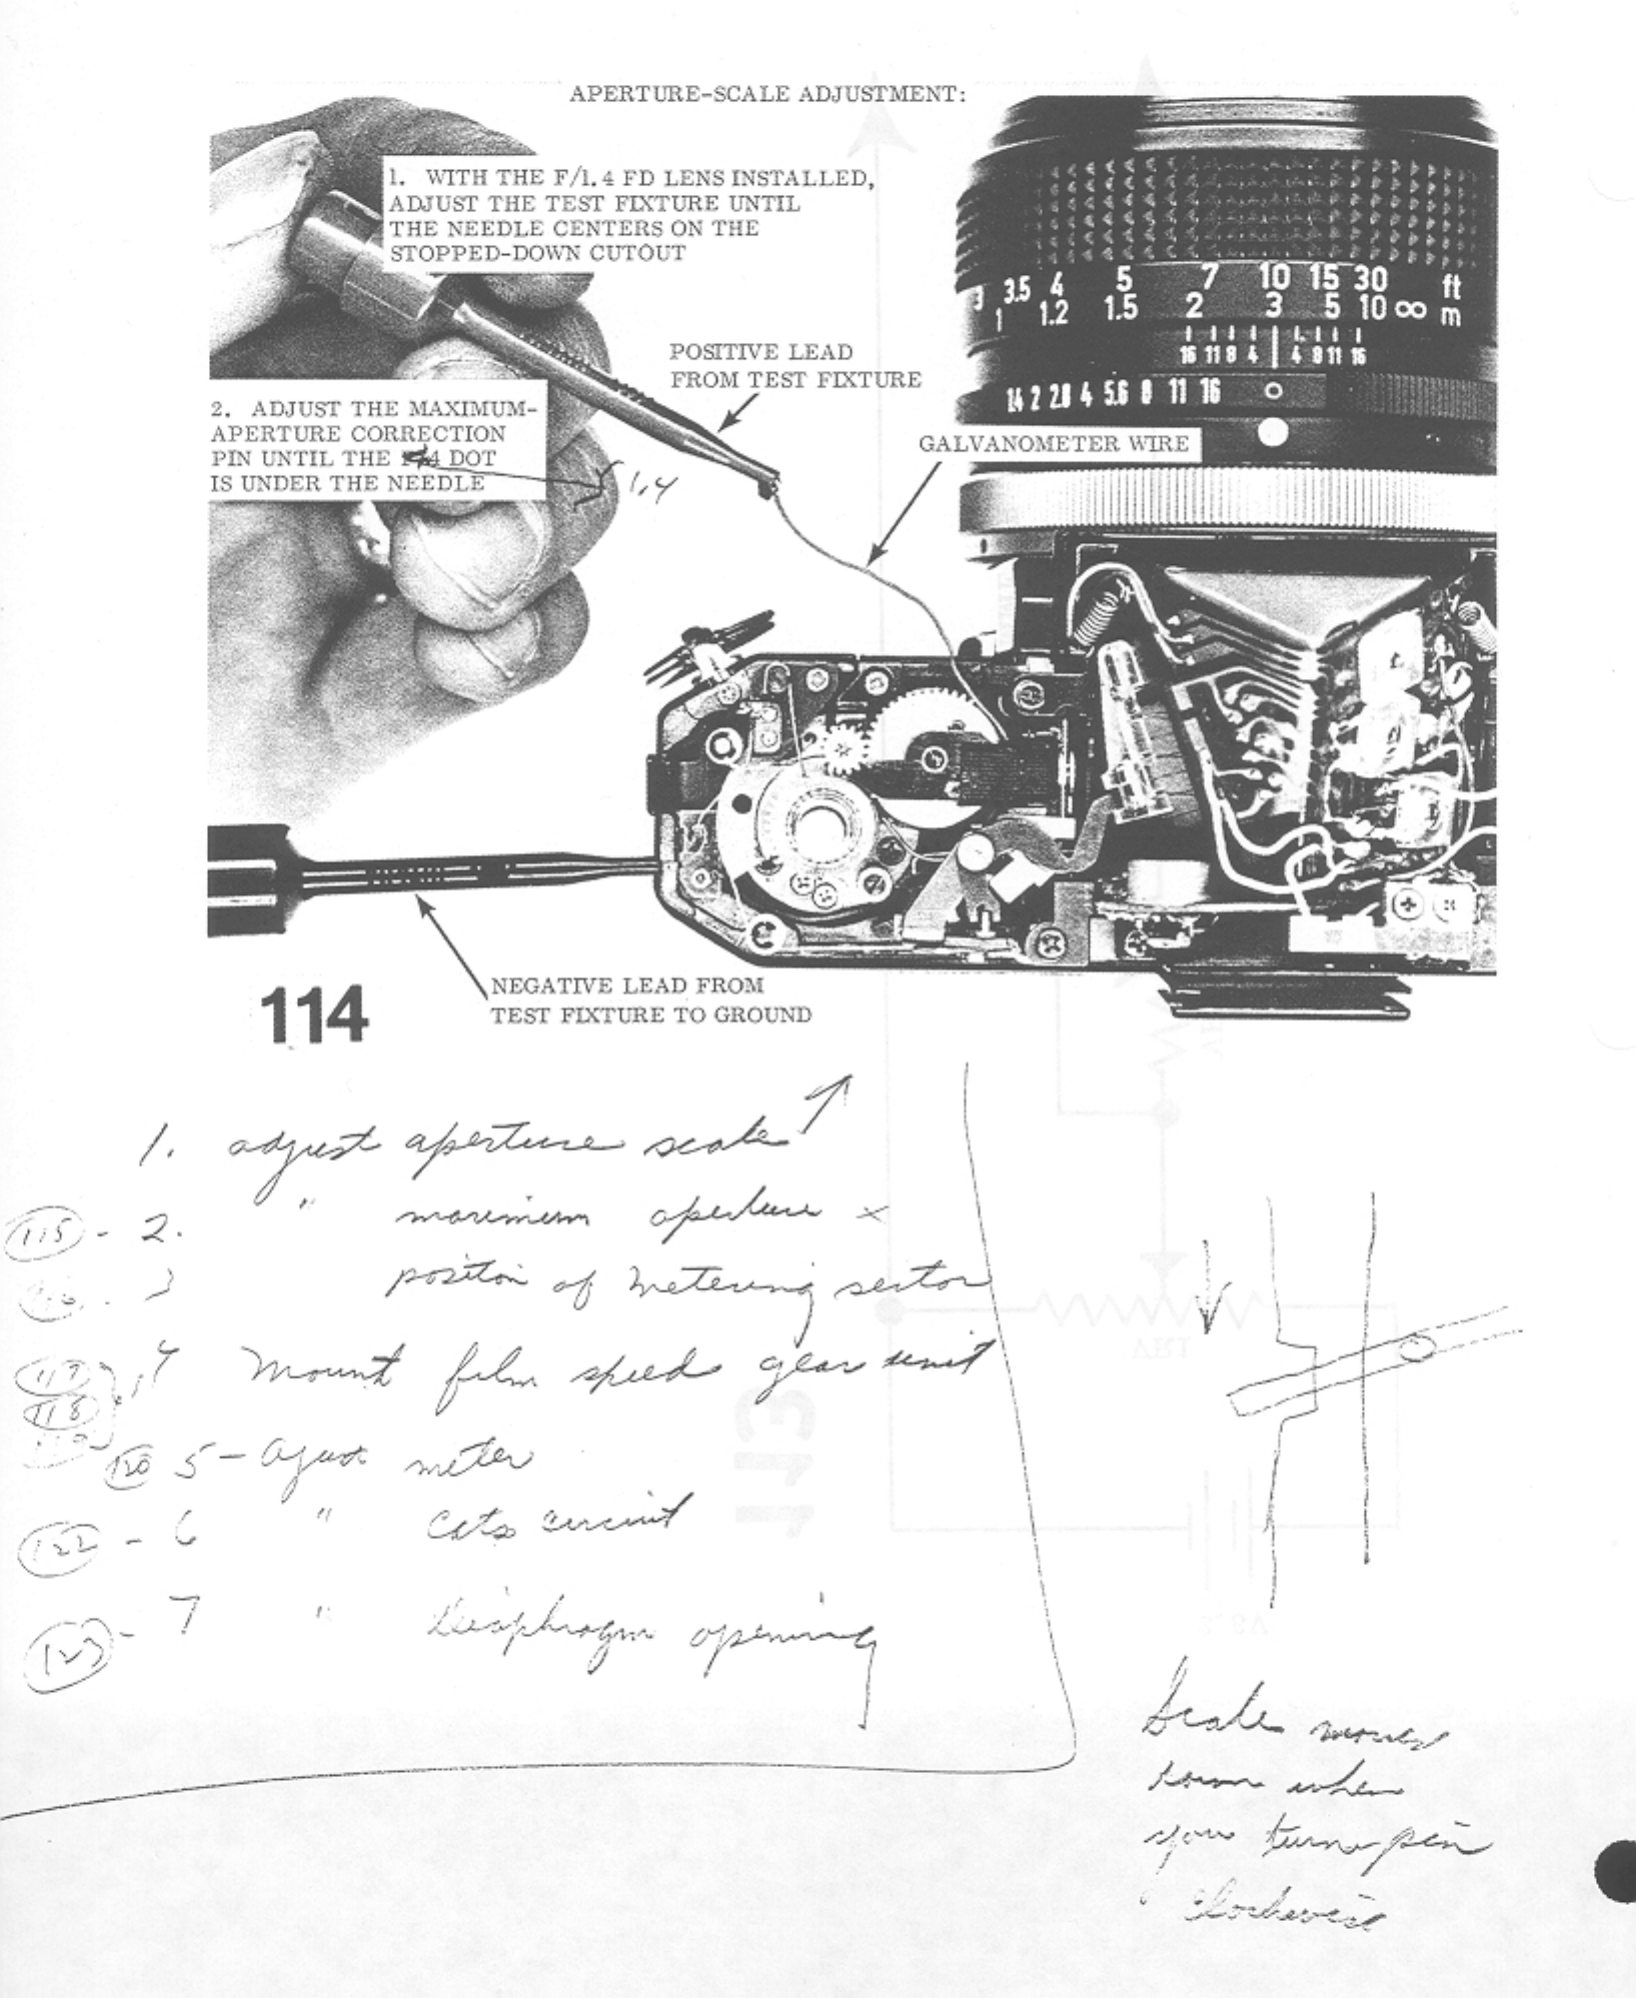 APERTURE-SCALE ADJUSTMENT:
1. WITH THE F/1.4 FD LENS INSTALLED,
ADJUST THE TEST FIXTURE UNTIL
THE NEEDLE CENTERS ON THE
STOPPED-DOWN CUTOUT
3 3.5 4 5 7 10 15 30 ft
1 1.2 1.5 2 3 5 10 ∞ m
16 11 8 4 4 8 11 16
1.4 2 2.8 4 5.6 8 11 16
POSITIVE LEAD
FROM TEST FIXTURE
2. ADJUST THE MAXIMUM-
APERTURE CORRECTION
PIN UNTIL THE DOT
IS UNDER THE NEEDLE
1.4
GALVANOMETER WIRE
NEGATIVE LEAD FROM
TEST FIXTURE TO GROUND
114
1. adjust aperture scale
115 - 2. " maximum aperture
116 . 3 position of metering sector
117 118 119 4 Mount film speed gear unit
120 5 - Ajust meter
122 - 6 " circuit
123 - 7 " Diaphragm opening
VR1
113
Scale moves
down when
you turn pin
clockwise